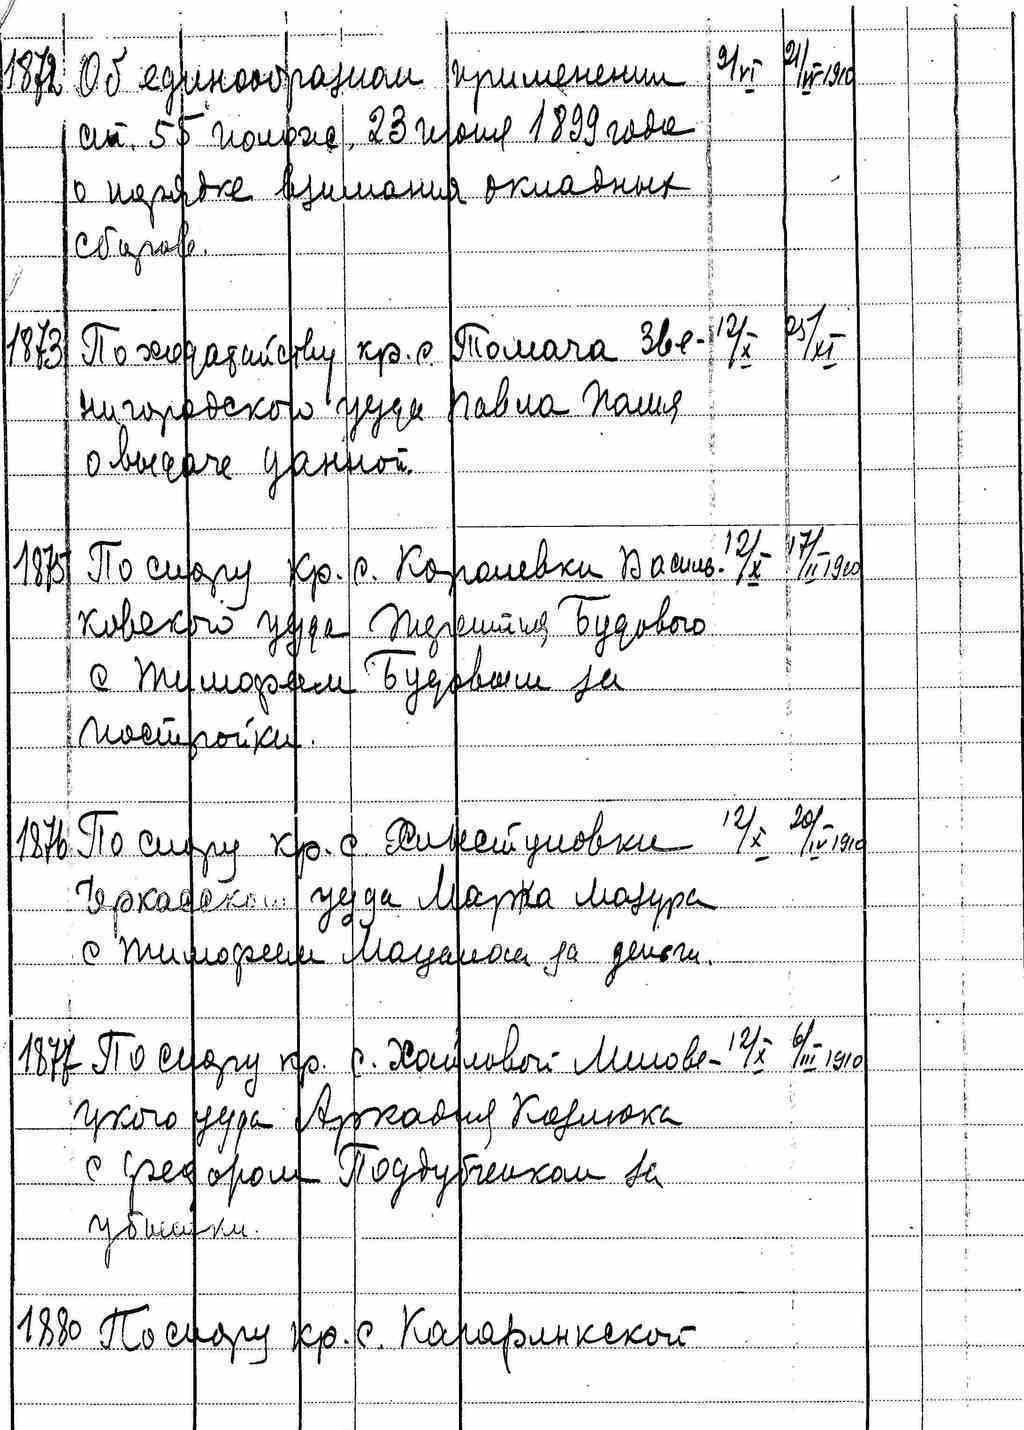 1872 Об единообразном применении 9/VI 21/VI 1910
ст. 55 полож. 23 июня 1899 года
о порядке взимания окладных
сборов.
1873 По ходатайству кр. с. Толмача Зве- 12/X 25/XI
нигородского уезда Павла
о выдаче данной.
1875 По спору кр. с. Королевки Василь- 12/X 17/II 1910
ковского уезда Терентия Будового
с Тимофеем Будовым за
постройки.
1876 По спору кр. с. Хлыстуновки 12/X 20/IV 1910
Черкасского уезда Марка Мазура
с Тимофеем за деньги.
1877 По спору кр. с. Хайловой Липове- 12/X 6/III 1910
цкого уезда Аркадия Козлюка
с Федором Поддубчёнком за
убытки.
1880 По спору кр. с. Кагарлыкской